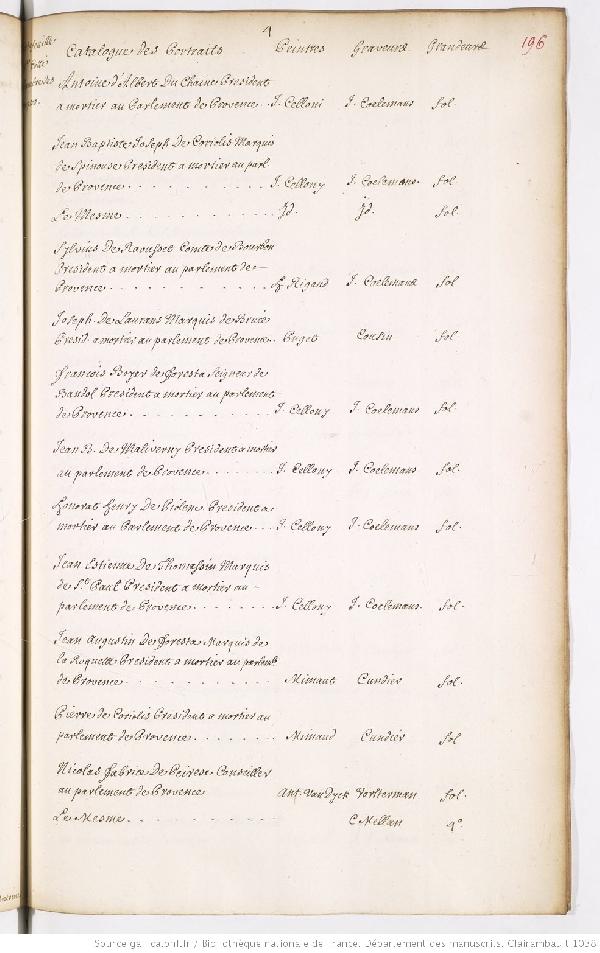 4
Catalogue des Portraits Peintres Graveurs Grandeurs 196
Antoine d'Albert Du Chaine President
a mortier au Parlement de Provence. J. Celloni J. Coelemans fol.
Jean Baptiste Joseph De Coriolis Marquis
de Spinouse President a mortier au parl.
de Provence . . . . . . . J. Cellony J. Coelemans. fol.
Le Mesme . . . . . . . Jd. Jd. fol.
Sylvius De Raousset Comte de Bourbon
President a mortier au parlement de –
Provence . . . . . . . H. Rigaud J. Coelemans fol
Joseph De Laurans Marquis de Bruë
Presid. a mortier au parlement de Provence. Puget Coussin fol
francois Boyer de foresta Seigneur de
Bandol President a mortier au parlement
de Provence . . . . . . . J. Cellony J. Coelemans fol.
Jean B. De Maliverny President a mortier
au parlement de Provence . . . . . J. Cellony J. Coelemans fol.
honorat henry De Piolene President a
mortier au Parlement de Provence . . . J. Cellony J. Coelemans fol.
Jean Estienne De Thomassin Marquis
de St. Paul President a mortier au –
parlement de Provence . . . . . . . J. Cellony J. Coelemans. fol.
Jean Augustin De foresta Marquis de
la Roquette President a mortier au parlemt
de Provence . . . . . . . Mimaut Cundier fol.
Pierre de Coriolis President a mortier au
parlement de Provence . . . . . . . Mimaud Cundier fol
Nicolas fabrice De Peiresc Conseiller
au parlement de Provence Ant. Van Dyck Vorsterman fol.
Le Mesme . . . . . . . C Mellan 4°
Source gallica.bnf.fr / Bibliothèque nationale de France. Département des manuscrits. Clairambault 1038